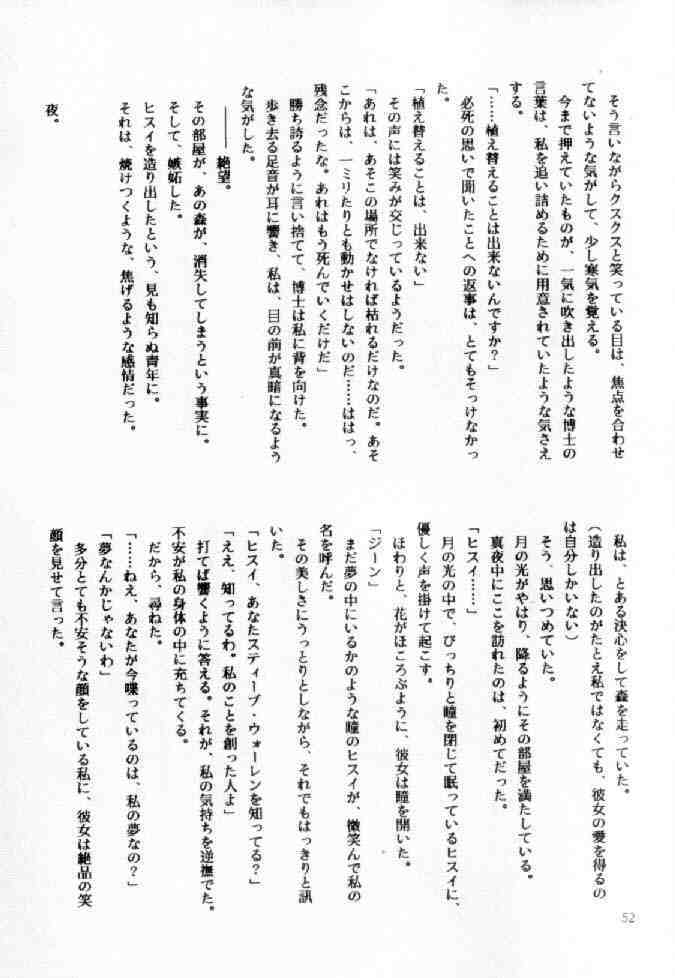 そう言いながらクスクスと笑っている目は、焦点を合わせ
てないような気がして、少し寒気を覚える。
今まで押えていたものが、一気に吹き出したような博士の
言葉は、私を追い詰めるために用意されていたような気さえ
する。
「……植え替えることは出来ないんですか？」
必死の思いで聞いたことへの返事は、とてもそっけなかっ
た。
「植え替えることは、出来ない」
その声には笑みが交じっているようだった。
「あれは、あそこの場所でなければ枯れるだけなのだ。あそ
こからは、一ミリたりとも動かせはしないのだ……ははっ、
残念だったな。あれはもう死んでいくだけだ」
勝ち誇るように言い捨てて、博士は私に背を向けた。
歩き去る足音が耳に響き、私は、目の前が真暗になるよう
な気がした。
――絶望。
その部屋が、あの森が、消失してしまうという事実に。
そして、嫉妬した。
ヒスイを造り出したという、見も知らぬ青年に。
それは、焼けつくような、焦げるような感情だった。
夜。
私は、とある決心をして森を走っていた。
（造り出したのがたとえ私ではなくても、彼女の愛を得るの
は自分しかいない）
そう、思いつめていた。
月の光がやはり、降るようにその部屋を満たしている。
真夜中にここを訪れたのは、初めてだった。
「ヒスイ……」
月の光の中で、ぴっちりと瞳を閉じて眠っているヒスイに、
優しく声を掛けて起こす。
ほわりと、花がほころぶように、彼女は瞳を開いた。
「ジーン」
まだ夢の中にいるかのような瞳のヒスイが、微笑んで私の
名を呼んだ。
その美しさにうっとりとしながら、それでもはっきりと訊
いた。
「ヒスイ、あなたスティーブ・ウォーレンを知ってる？」
「ええ、知ってるわ。私のことを創った人よ」
打てば響くように答える。それが、私の気持ちを逆撫でた。
不安が私の身体の中に充ちてくる。
だから、尋ねた。
「……ねえ、あなたが今喋っているのは、私の夢なの？」
「夢なんかじゃないわ」
多分とても不安そうな顔をしている私に、彼女は絶品の笑
顔を見せて言った。
52